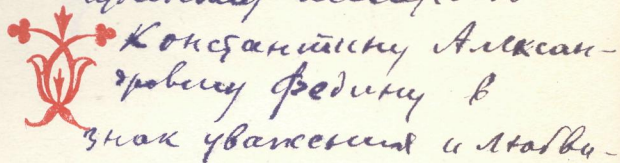 Константину Алексан-
дровичу Федину в
знак уважения и любви-